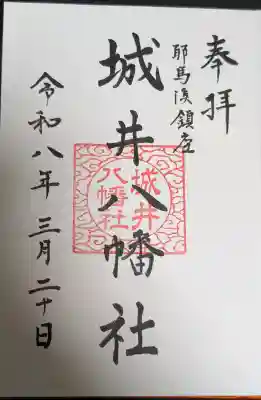 奉拝
耶馬渓鎮座
城井八幡社
城井
八幡社
令和八年三月二十日